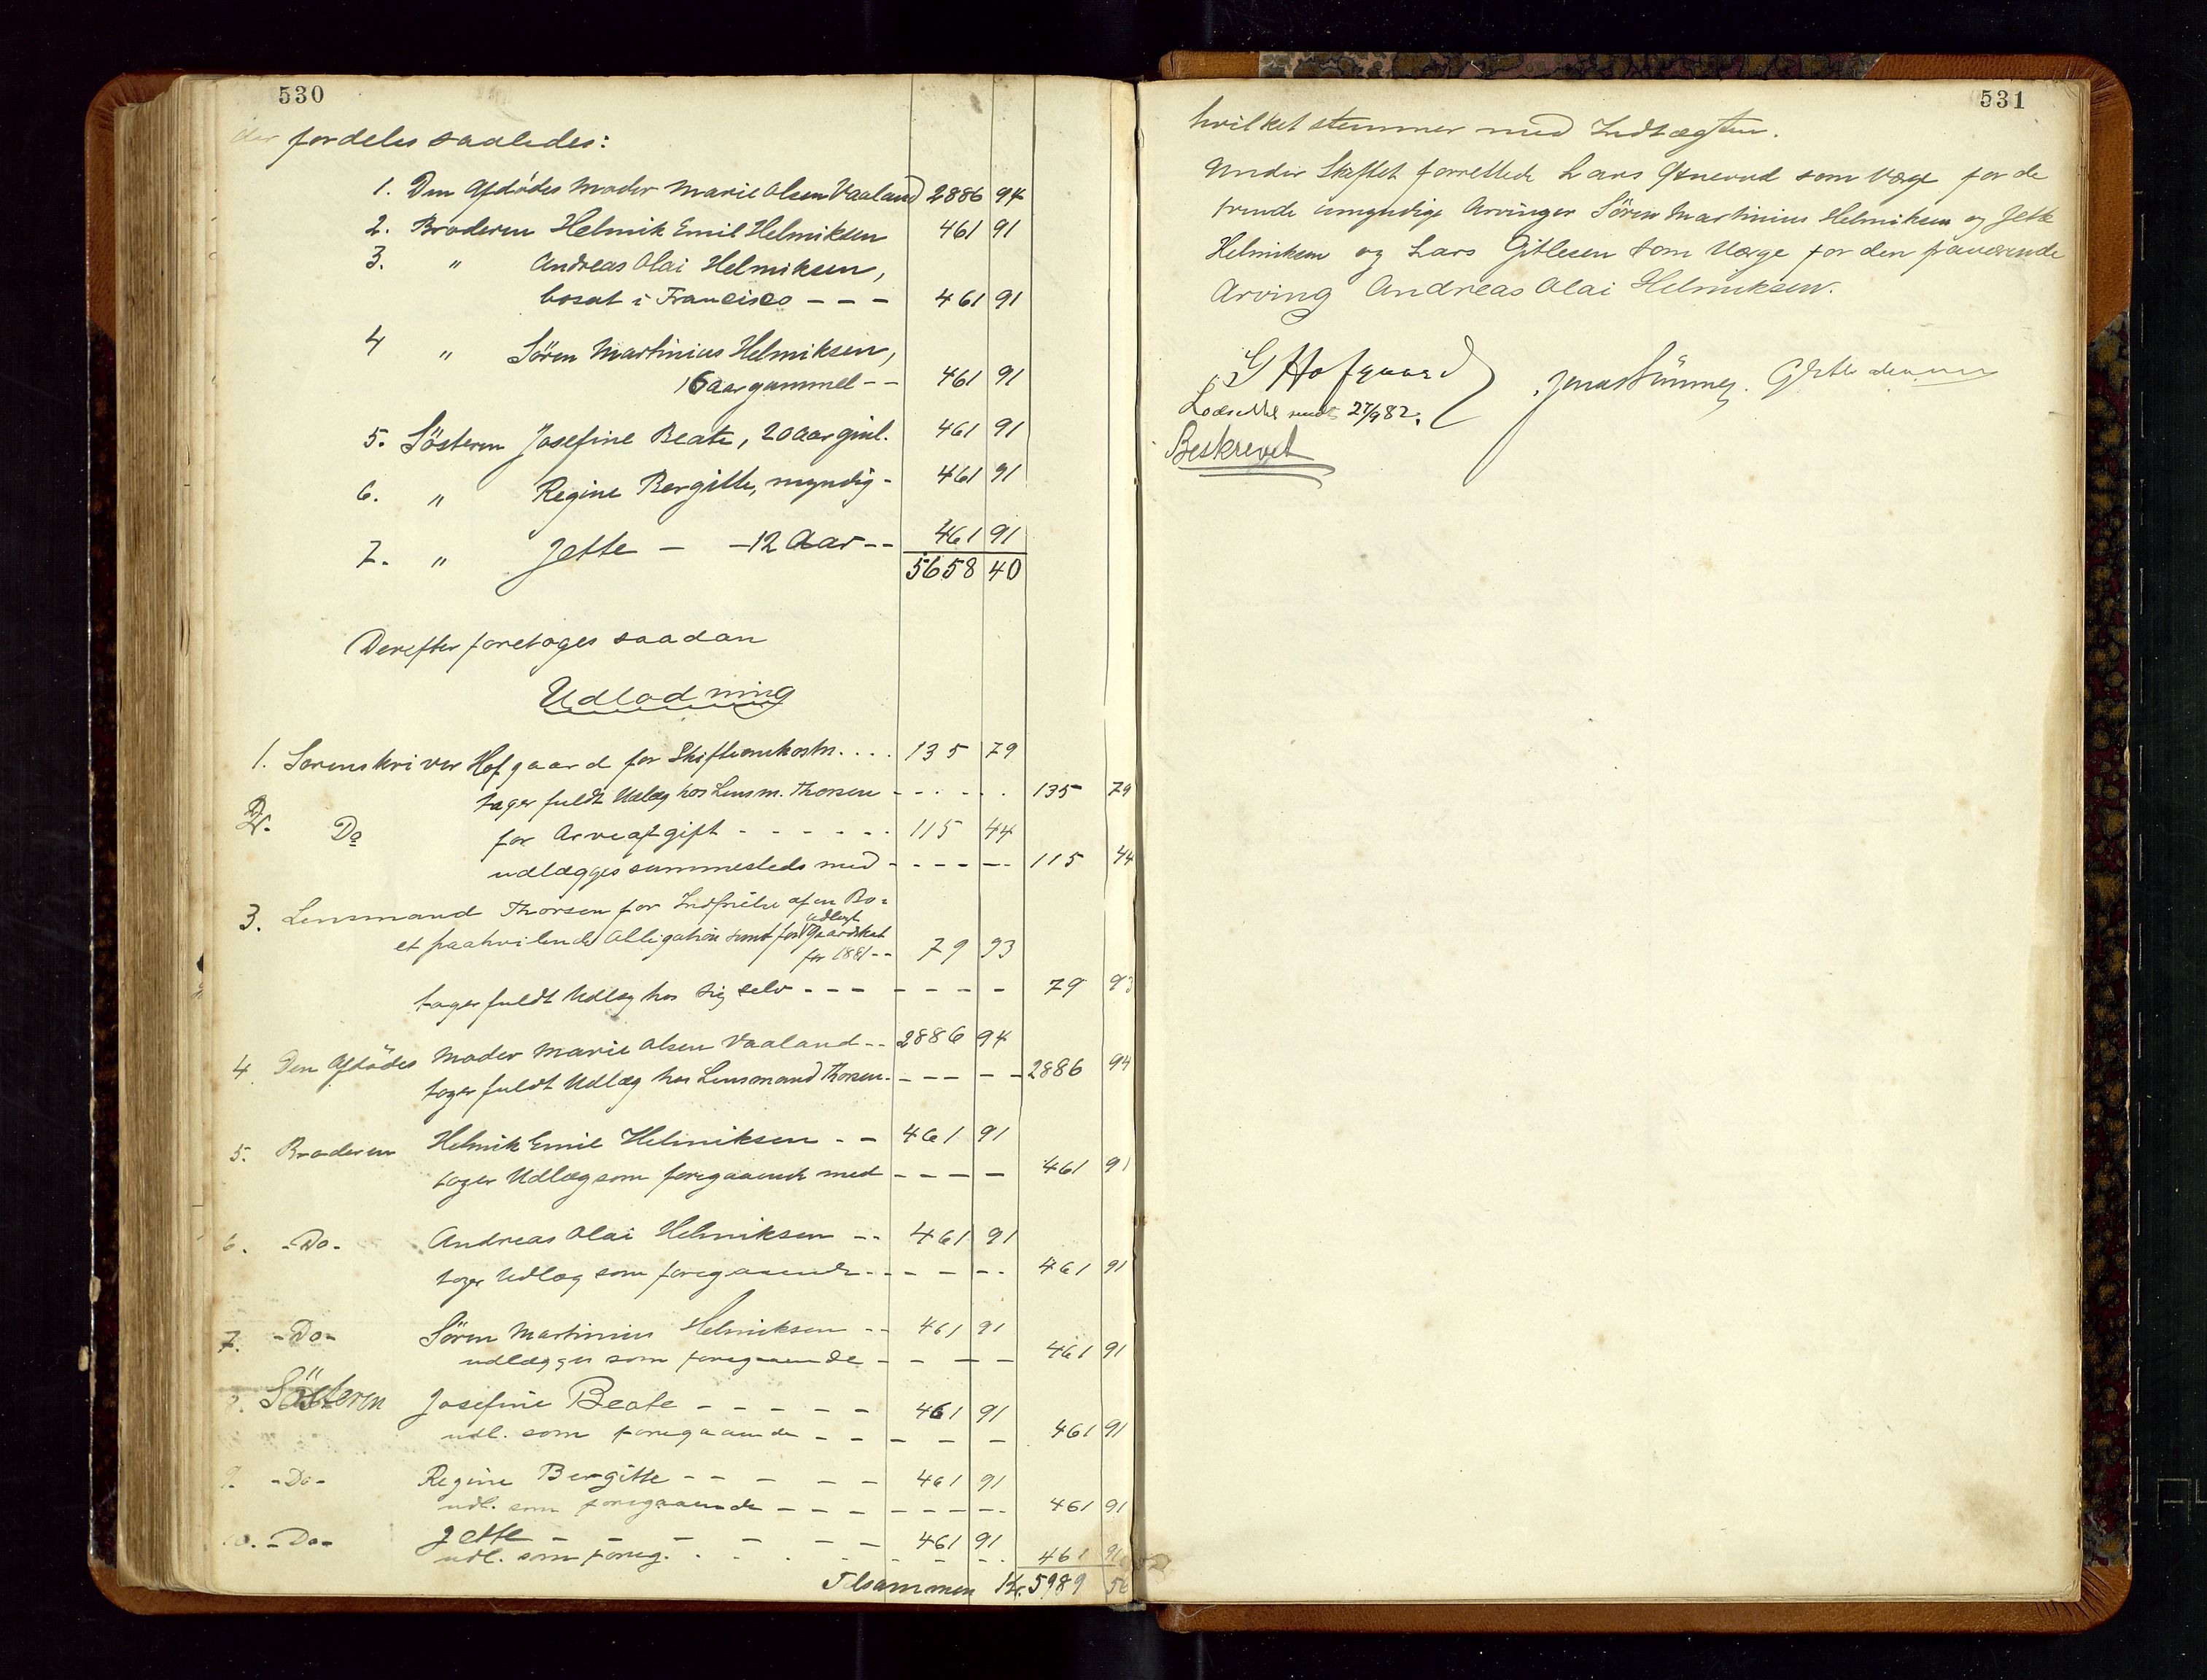 530
der fordeles saaledes:
1. Den Afdødes Moder Marie Olsen Vaaland 2886 94
2. Broderen Helmik Emil Helmiksen 461 91
3. " Andreas Olai Helmiksen,
bosat i Francisco - - - 461 91
4 " Sören Martinius Helmiksen,
16 aar gammel - - 461 91
5. Søsteren Josefine Beate, 20 aar gml. 461 91
6. " Regine Bergitte, myndig - 461 91
7. " Jette - - 12 Aar - - 461 91
5658 40
Derefter foretoges saadan
Udlodning
1. Sorenskriver Hofgaard for Skifteomkostn. . . . 135 79
tager fuldt Udlæg hos Lensm. Thorsen - . - . - . 135 79
2. Do for Arveafgift - - - - - - 115 44
udlægges sammesteds med - - - - - - 115 44
3. Lensmand Thorsen for Indfrielse af en Bo-
et paahvilende Obligation samt for udlagt Gaardskat
for 1881 - - 79 93
tager fuldt Udlæg hos sig selv - - - - - - - 79 93
4. Den Afdødes Moder Marie Olsen Vaaland - - 2886 94
tager fuldt Udlæg hos Lensmand Thorsen. - - - - - 2886 94
5. Broderen Helmik Emil Helmiksen - - 461 91
tager Udlæg som foregaaende med - - - - 461 91
6. -Do- Andreas Olai Helmiksen - - 461 91
tager Udlæg som foregaaende - - - - - - 461 91
7. -Do- Sören Martinius Helmiksen - - 461 91
udlægges som foregaaende - - - - 461 91
8. Søsteren Josefine Beate - - - - - 461 91
udl. som foregaaende - - - - - 461 91
9. -Do- Regine Bergitte - - - - - 461 91
udl. som foregaaende - - - - - - - 461 91
10. -Do- Jette - - - - - - 461 91
udl. som foreg. . . . - - - - . 461 91
Tilsammen Kr. 5989 56
531
hvilket stemmer med Indtægten.
Under Skiftet forrettede Lars som Værge for de
trende umyndige Arvinger Sören Martinius Helmiksen og Jette
Helmiksen og Lars Gitlesen som Værge for den fraværende
Arving Andreas Olai Helmiksen.
G Hofgaard
27/9 82.
Beskrevet